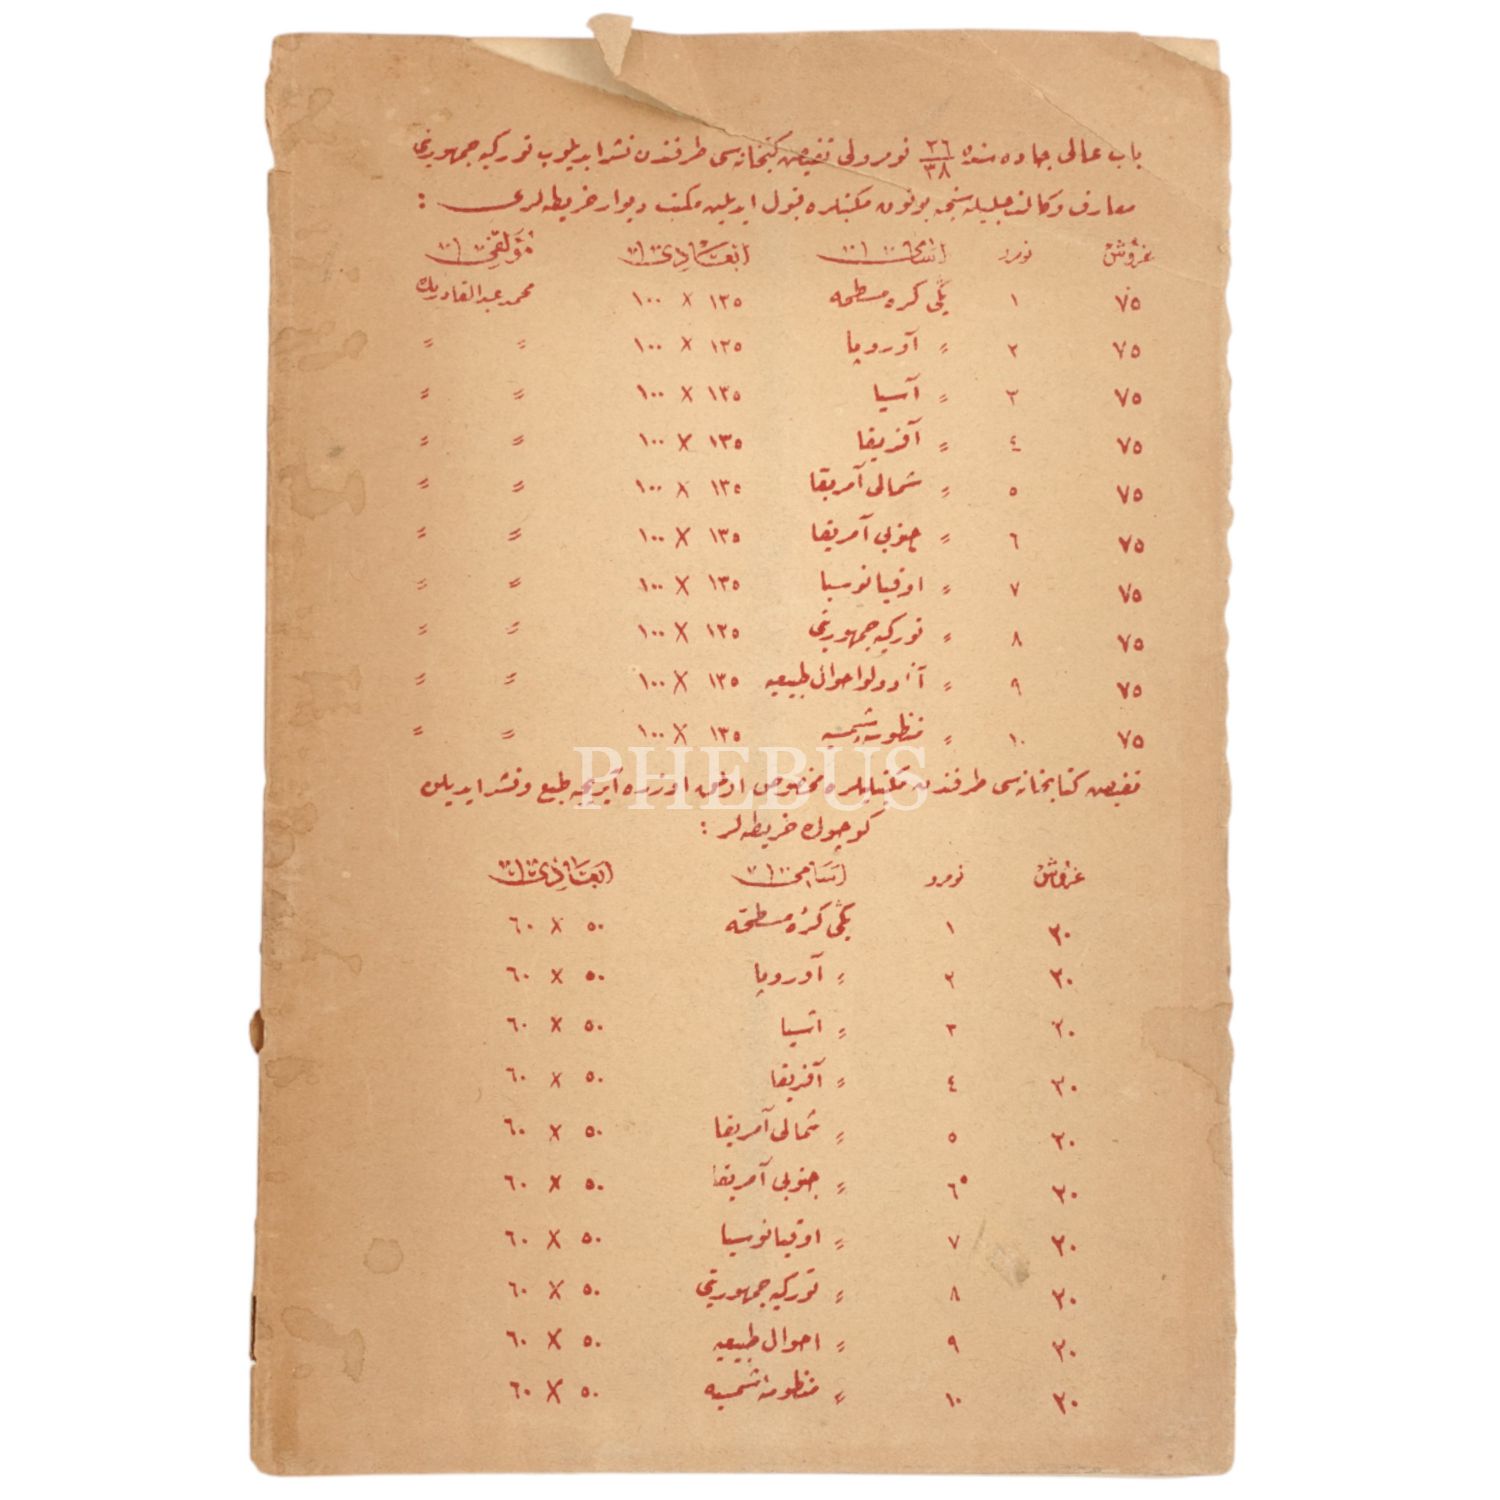 باب عالی جاده سنده ٣٦/٣٨ نومرولی تفیض كتبخانه سی طرفندن نشر ایدیلوب توركیه جمهوریتی
معارف وكالت جلیله سنجه بوتون مكتبلره قبول ایدیلن مكتب دیوار خریطه لری :
غروش نومرو اسامیسی ابعادی مؤلفی
٧٥ ١ یكی كره مسطحه ١٣٥ X ١٠٠ محمد عبدالقادر بك
٧٥ ٢ 〃 آوروپا ١٣٥ X ١٠٠ 〃 〃
٧٥ ٣ 〃 آسیا ١٣٥ X ١٠٠ 〃 〃
٧٥ ٤ 〃 آفریقا ١٣٥ X ١٠٠ 〃 〃
٧٥ ٥ 〃 شمالی آمریقا ١٣٥ X ١٠٠ 〃 〃
٧٥ ٦ 〃 جنوبی آمریقا ١٣٥ X ١٠٠ 〃 〃
٧٥ ٧ 〃 اوقیانوسیا ١٣٥ X ١٠٠ 〃 〃
٧٥ ٨ 〃 توركیه جمهوریتی ١٣٥ X ١٠٠ 〃 〃
٧٥ ٩ 〃 آنادولو احوال طبیعیه ١٣٥ X ١٠٠ 〃 〃
٧٥ ١٠ 〃 منظومه شمسیه ١٣٥ X ١٠٠ 〃 〃
PHEBUS
تفیض كتابخانه سی طرفندن مكتبلیلره مخصوص اولمق اوزره آیریجه طبع و نشر ایدیلن
كوچوك خریطه لر :
غروش نومرو اسامیسی ابعادی
٣٠ ١ یكی كرهٔ مسطحه ٥٠ X ٦٠
٣٠ ٢ 〃 آوروپا ٥٠ X ٦٠
٣٠ ٣ 〃 آسیا ٥٠ X ٦٠
٣٠ ٤ 〃 آفریقا ٥٠ X ٦٠
٣٠ ٥ 〃 شمالی آمریقا ٥٠ X ٦٠
٣٠ ٦ 〃 جنوبی آمریقا ٥٠ X ٦٠
٣٠ ٧ 〃 اوقیانوسیا ٥٠ X ٦٠
٣٠ ٨ 〃 توركیه جمهوریتی ٥٠ X ٦٠
٣٠ ٩ 〃 احوال طبیعیه ٥٠ X ٦٠
٣٠ ١٠ 〃 منظومه شمسیه ٥٠ X ٦٠